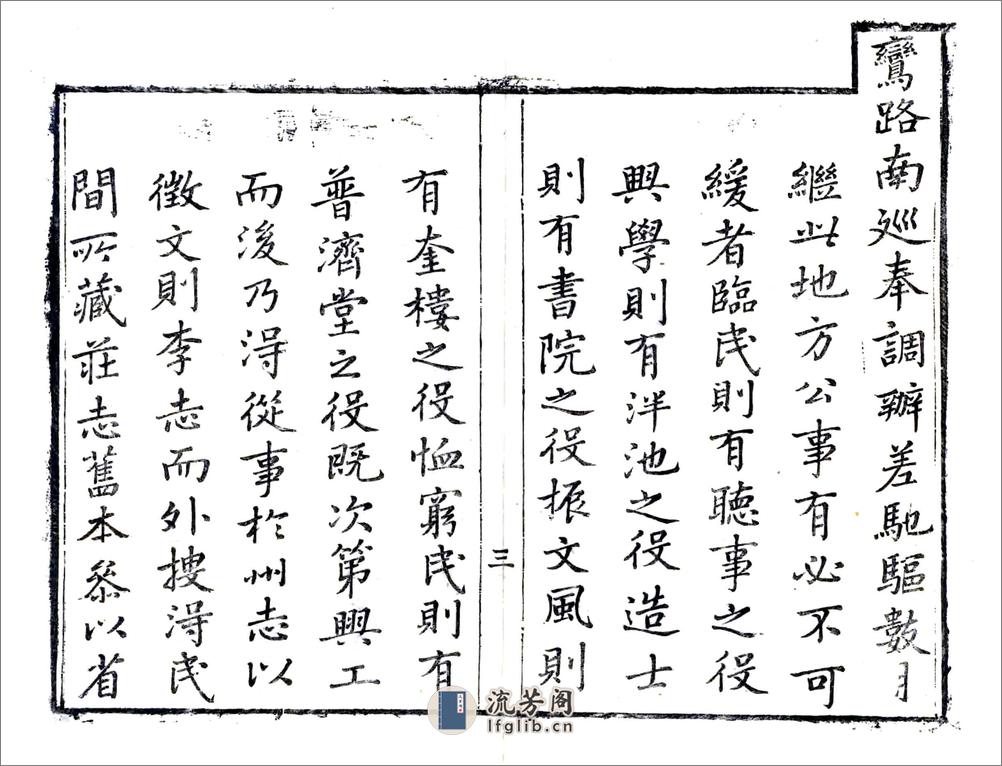 鸞路南廵奉調辦差馳驅數月
繼此地方公事有必不可
緩者臨民則有聽事之役
興學則有泮池之役造士
則有書院之役振文風則
三
有奎樓之役恤窮民則有
普濟堂之役既次第興工
而後乃淂從事於州志以
徵文則李志而外搜淂民
間所藏莊志舊本叅以省
流芳阁
lfglib.cn